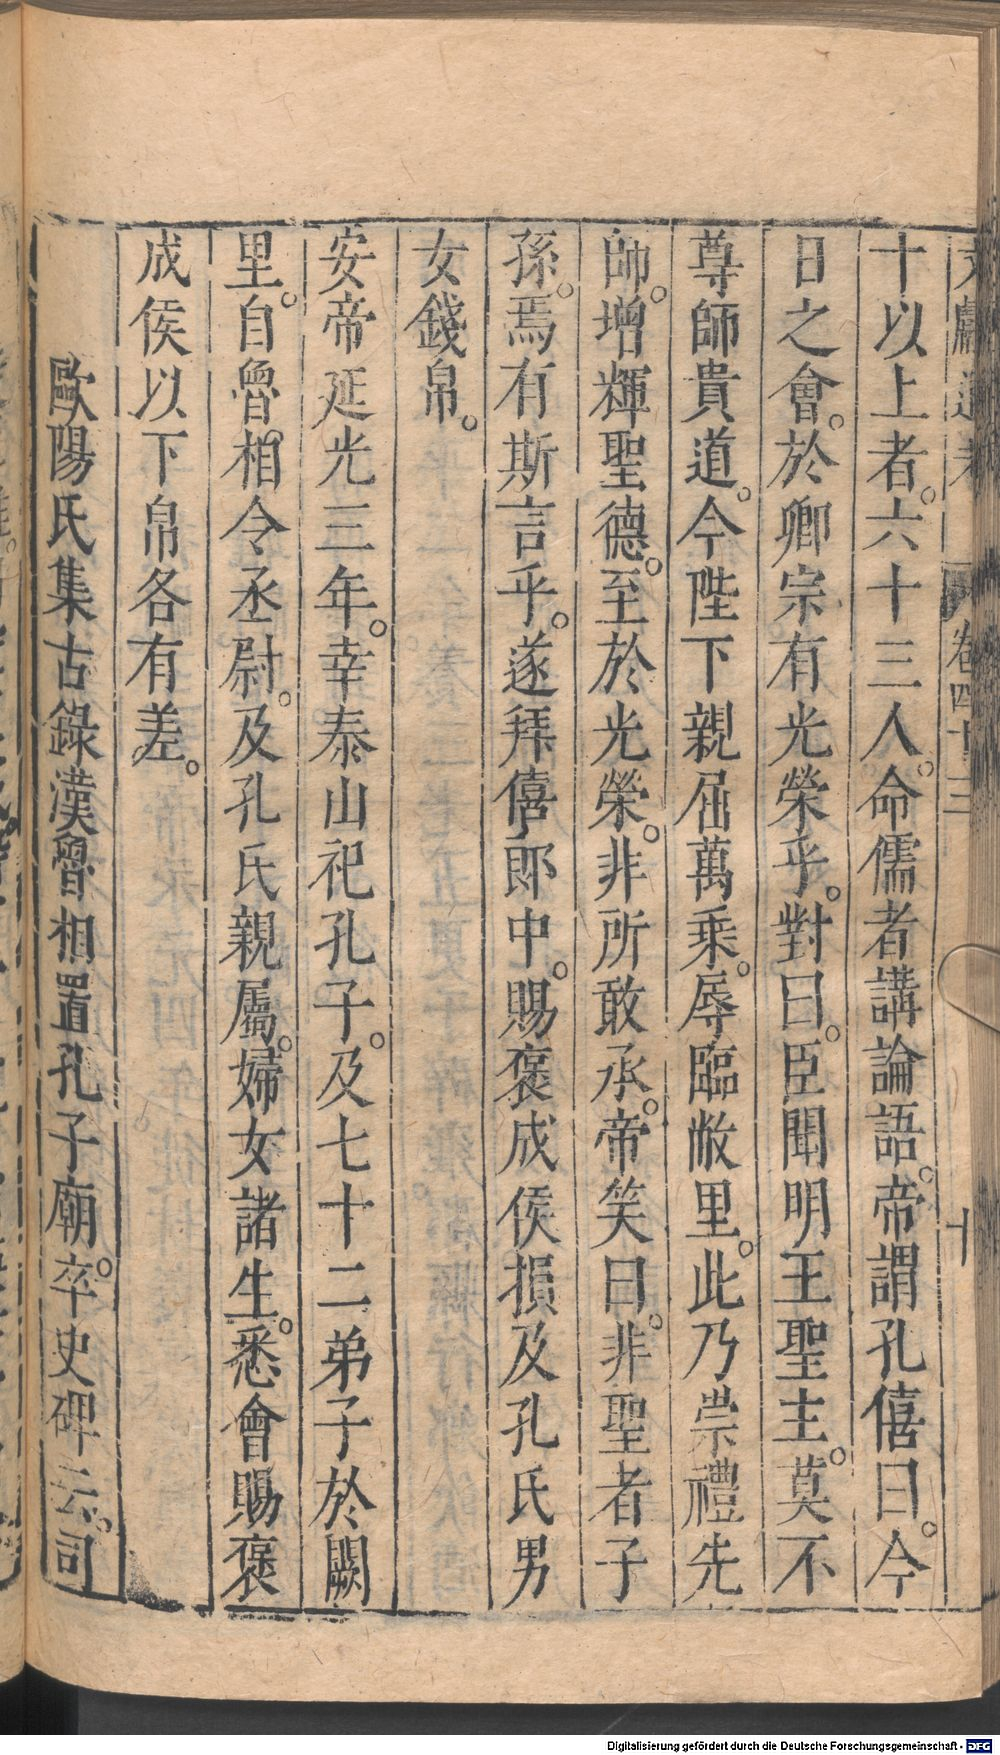 文獻通考 卷四十三 十
十以上者。六十三人。命儒者講論語。帝謂孔僖曰。今
日之會。於卿宗有光榮乎。對曰。臣聞明王聖主。莫不
尊師貴道。今陛下親屈萬乘。辱臨敝里。此乃崇禮先
師。增輝聖德。至於光榮。非所敢承。帝笑曰。非聖者子
孫。焉有斯言乎。遂拜僖郎中。賜褒成侯損及孔氏男
女錢帛。
安帝延光三年。幸泰山祀孔子。及七十二弟子於闕
里。自魯相令丞尉。及孔氏親屬。婦女諸生。悉會賜褒
成侯以下帛各有差。
歐陽氏集古錄漢魯相置孔子廟。卒史碑云。司
Digitalisierung gefördert durch die Deutsche Forschungsgemeinschaft - DFG